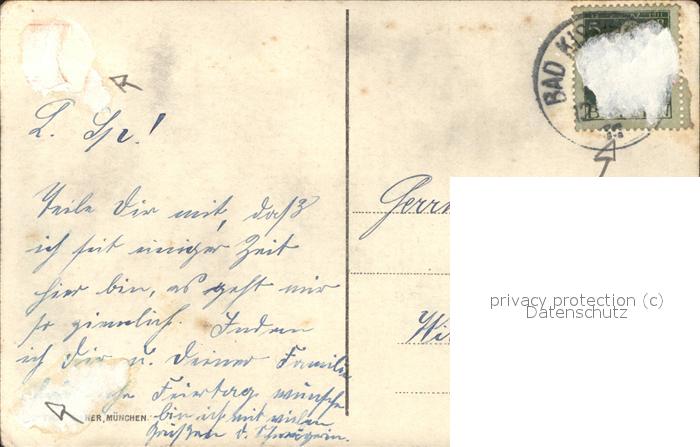 BAD KIS
L. Sp!
Teile Dir mit, daß
ich seit einiger Zeit
hier bin, es geht mir
so ziemlich. Indem
ich Dir u. Deiner Familie
Feiertag wünsche
bin ich mit vielen
Grüßen d. Schwägerin.
NER, MÜNCHEN.
Herrn
Wil
privacy protection (c)
Datenschutz